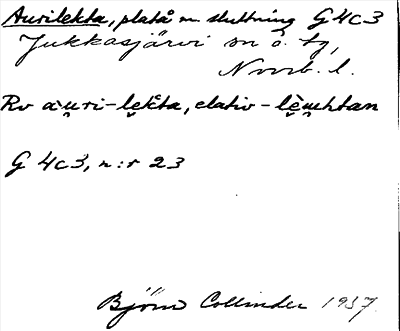 Aurilekta, platå m sluttning G 4c3
Jukkasjärvi sn o. tg,
Norrb. l.
Rv àu̯ri-lekta, elativ -lèu̯htan
G 4c3, n:r 23
Björn Collinder 1937